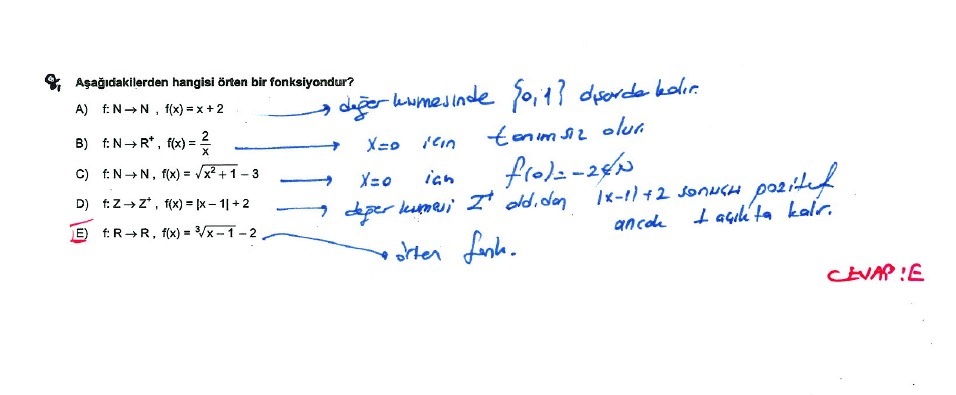 Aşağıdakilerden hangisi örten bir fonksiyondur?
A) f: N → N , f(x) = x + 2 → değer kümesinde {0,1} dışarda kalır.
B) f: N → R⁺ , f(x) = 2/x → x=0 için tanımsız olur.
C) f: N → N, f(x) = √(x² + 1) − 3 → x=0 için f(0) = −2 ∉ N
D) f: Z → Z⁺ , f(x) = |x − 1| + 2 → değer kümesi Z⁺ old.dan |x−1|+2 sonucu pozitif
ancak 1 açıkta kalır.
E) f: R → R, f(x) = ∛(x − 1) − 2 → örten fonk.
CEVAP : E